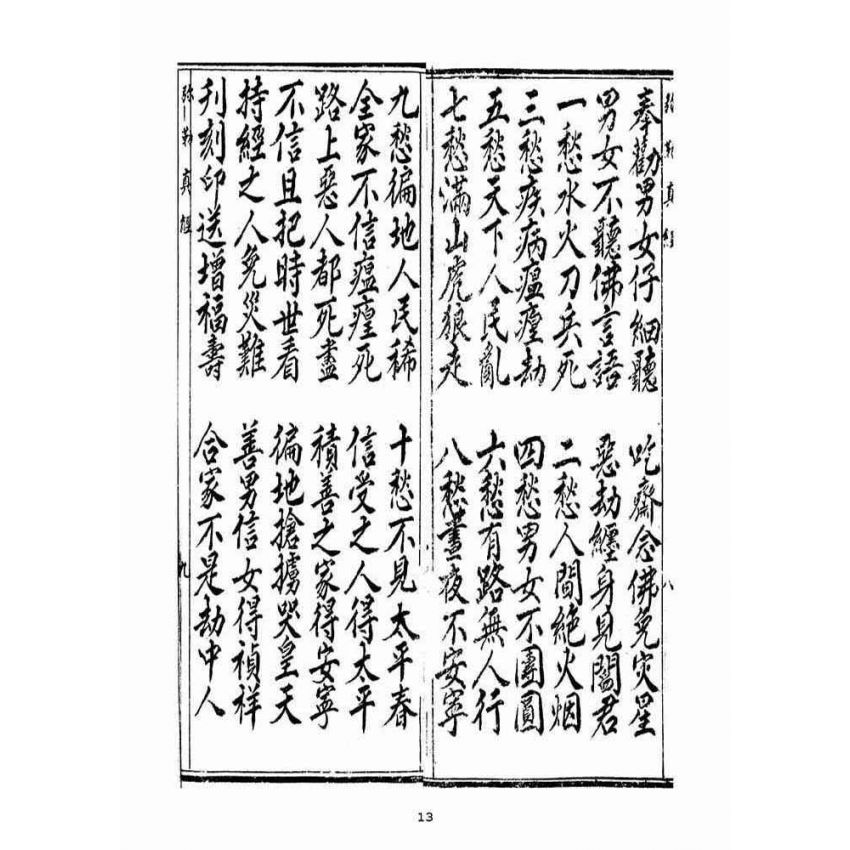 弥勒真經
奉勸男女仔細聽 吃齋念佛免灾星
男女不聽佛言語 惡劫纏身見閻君
一愁水火刀兵死 二愁人間絶火烟
三愁疾病瘟㾮劫 四愁男女不團圓
五愁天下人民亂 六愁有路無人行
七愁滿山虎狼走 八愁晝夜不安寧
八
九愁徧地人民稀 十愁不見太平春
全家不信瘟㾮死 信受之人得太平
路上惡人都死盡 積善之家得安寧
不信且把時世看 徧地搶擄哭皇天
持經之人免災難 善男信女得禎祥
刋刻印送增福壽 合家不是劫中人
弥勒真經
九
13